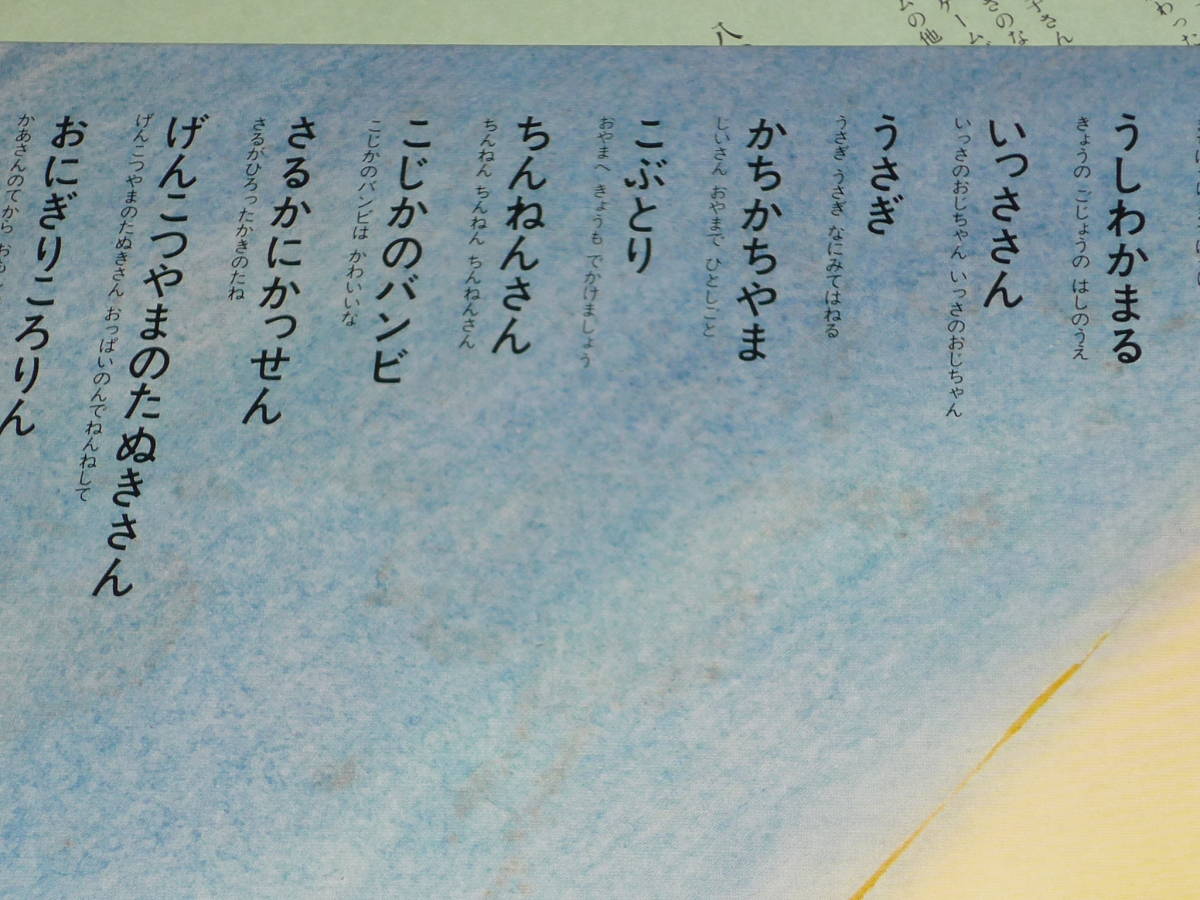 うしわかまる
きょうの ごじょうの はしのうえ
いっささん
いっさのおじちゃん いっさのおじちゃん
うさぎ
うさぎ うさぎ なにみてはねる
かちかちやま
じいさん おやまで ひとしごと
こぶとり
おやまへ きょうも でかけましょう
ちんねんさん
ちんねん ちんねん ちんねんさん
こじかのバンビ
こじかのバンビは かわいいな
さるかにかっせん
さるがひろったかきのたね
げんこつやまのたぬきさん
げんこつやまのたぬきさん おっぱいのんでねんねして
おにぎりころりん
かあさんのてから